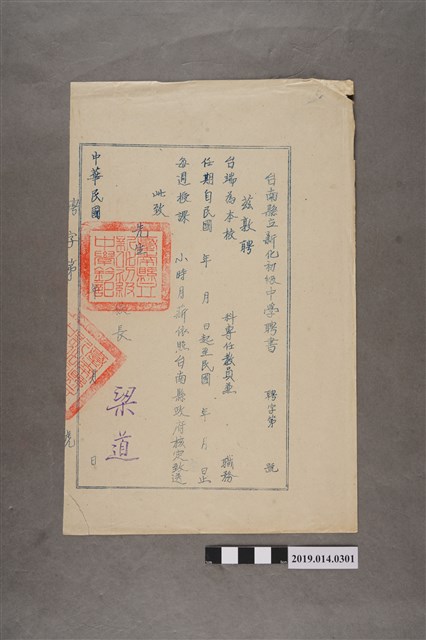 台南縣立新化初級中學聘書 聘字第 號
茲敦聘
台端為本校 科專任教員兼 職務
任期自民國 年 月 日起至民國 年 月 日止
每週授課 小時月薪依照台南縣政府核定致送
此致
先生
校長 梁道
中華民國 年 月 日
字第 號
2019.014.0301